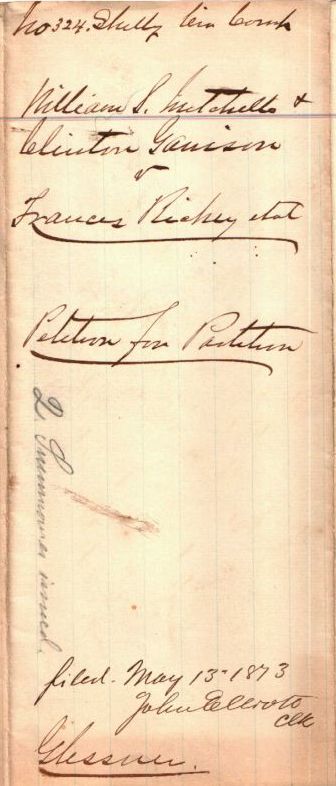 No 324. Shelby Cir Court
William S. Mitchell &
Clinton Garrison
v
Frances Richey et al
Petition for Partition
2 Summonses issued.
filed. May 13 - 1873
John Elliott
Clk
Glessner.